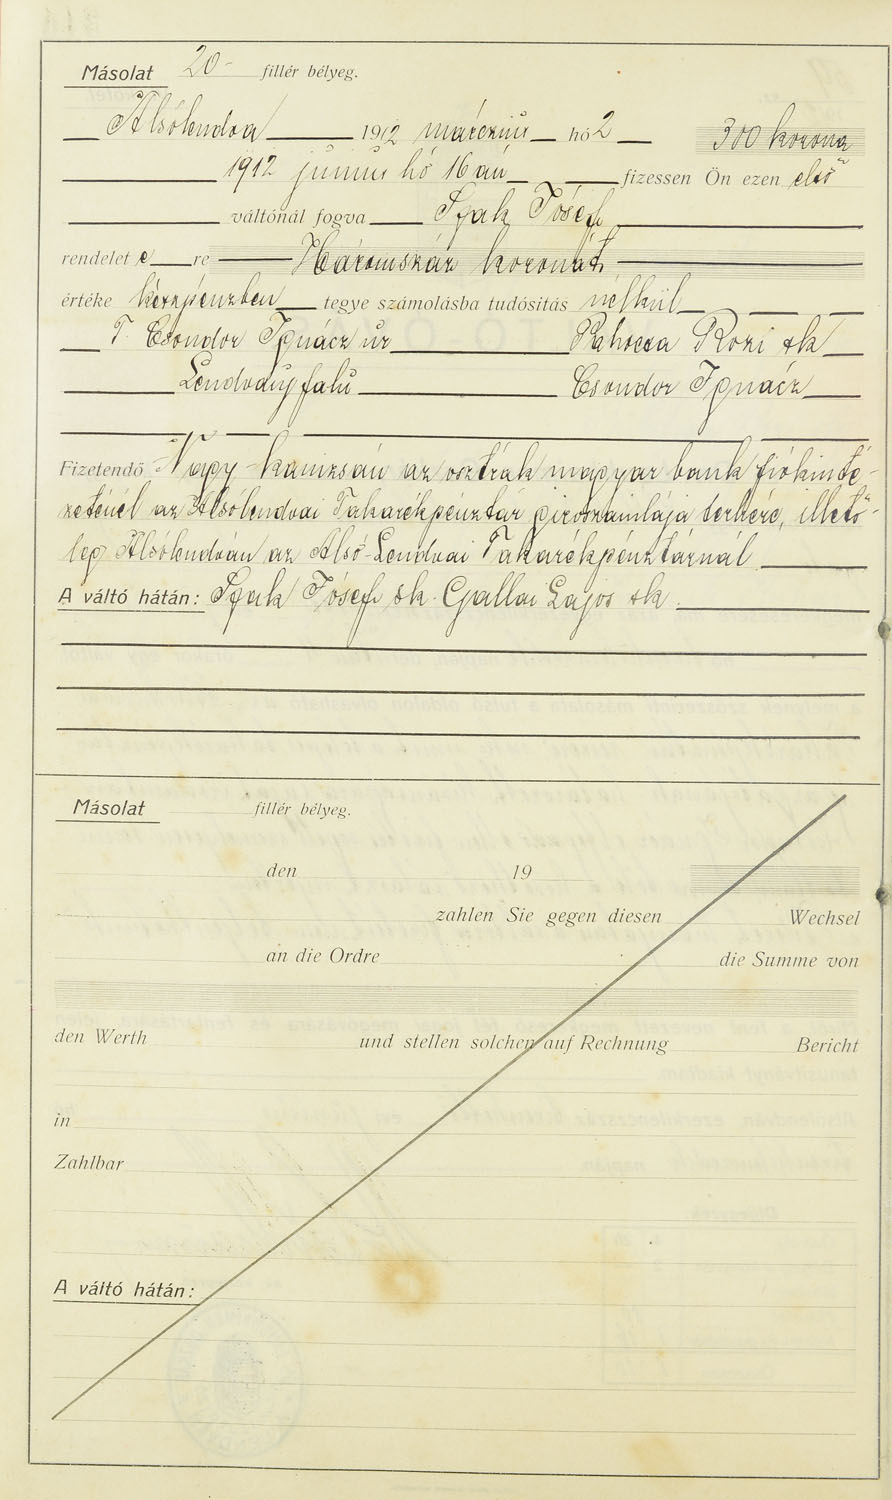 Másolat 20 - fillér bélyeg.
Alsólendva 1912 márczius hó 2 300 korona
1912 június hó 16 án fizessen Ön ezen első
váltónál fogva József
rendelet e re Háromszáz koronát
értéke készpénzben tegye számolásba tudósítás nélkül
T. Csondor Ignácz úr Rozi sk
Lendvaújfalu Csondor Ignácz
Fizetendő Nagy-kanizsán az osztrák magyar bank fiókinté-
zeténél az Alsólendvai Takarékpénztár girószámlája terhére, illető-
leg Alsólendván az Alsó-Lendvai Takarékpénztárnál
A váltó hátán: József sk. Gallai Lajos sk
Másolat fillér bélyeg.
den 19
zahlen Sie gegen diesen Wechsel
an die Ordre die Summe von
den Werth und stellen solchen auf Rechnung Bericht
in
Zahlbar
A váltó hátán: